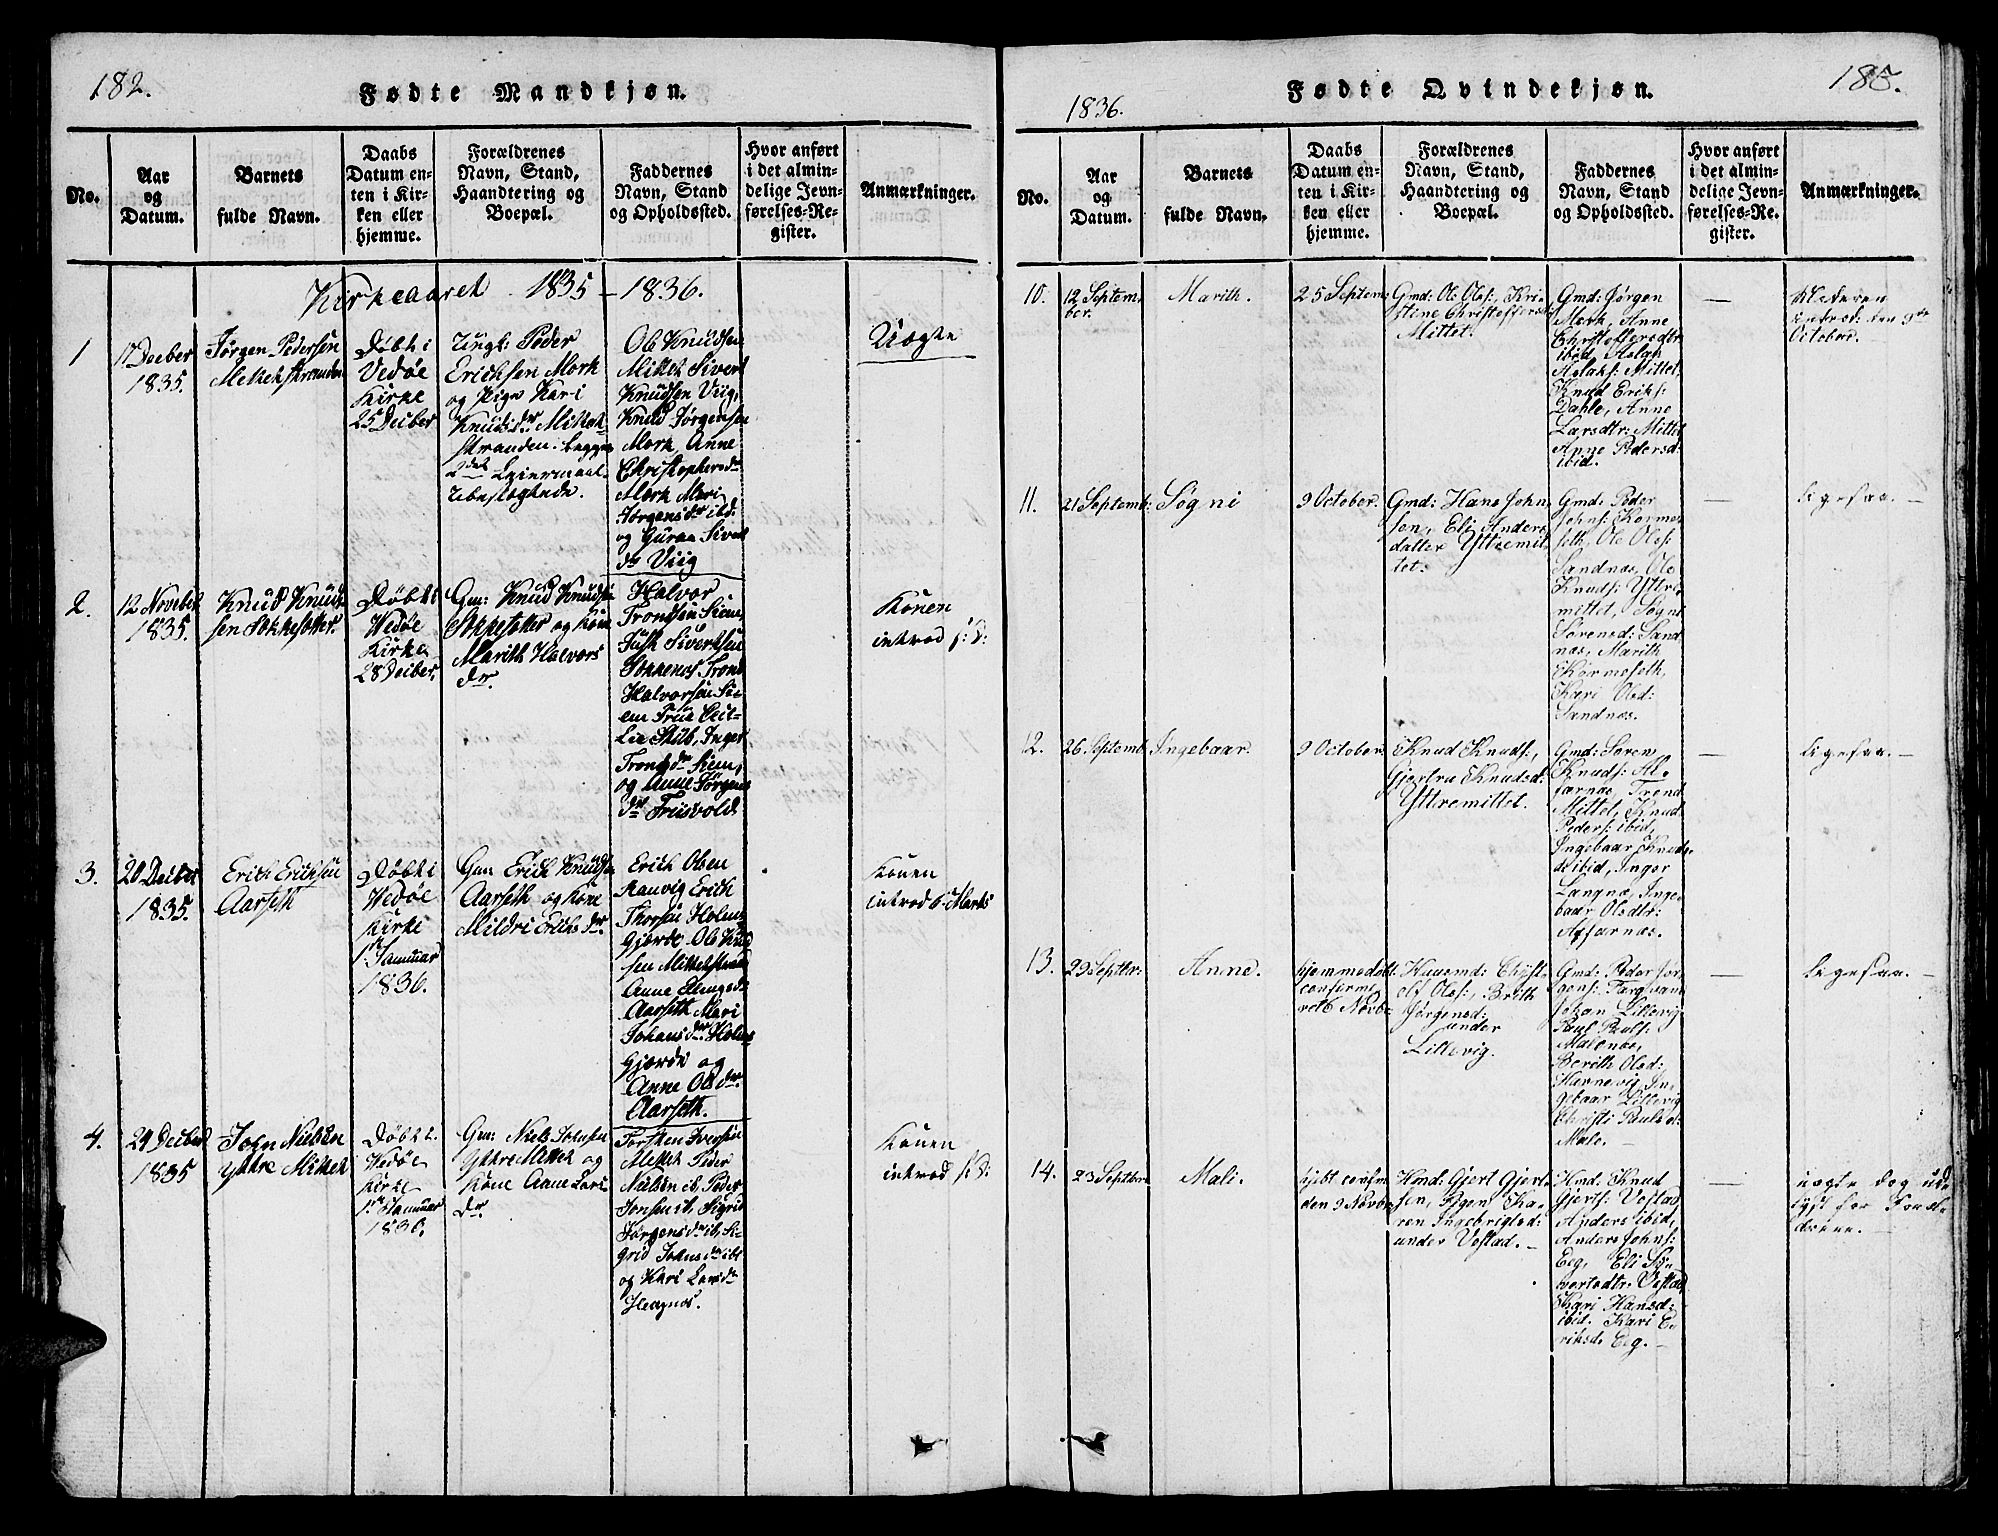 182.
Fødte Mandkjøn.
No.
Aar
og
Datum.
Barnets
fulde Navn.
Daabs
Datum en-
ten i Kir-
ken eller
hjemme.
Forældrenes
Navn, Stand,
Haandtering og
Boepæl.
Faddernes
Navn, Stand
og Opholdssted.
Hvor anført
i det almin-
delige Jevn-
førelses-Re-
gister.
Anmærkninger.
Kirkeaaret 1835-1836.
1
17 Decber
1835.
Jørgen Pedersen
Mittetstranden
Døbt i
Vedøe
Kirke
25 Decber
Ungk: Peder
Erichsen Mork
og Pige Kari
Knudsdr Mittet-
stranden. begges
2det Leiermaal.
Ubeslægtede.
Ole Knudsen
Mittet Sivert
Knudsen Viig,
Knud Jørgensen
Mork Anne
Christophersdr
Mork Mari
Jørgensdr ibd.
og Guran Siverts
dr Viig
Uægte
2.
12 Novebr
1835.
Knud Knud-
sen
Døbt i
Wedøe
Kirke
28 Decber.
Gm: Knud Knudsen
og Kone
Marith Halvors
dr.
Halvor
Trondsen Siem,
Sivertsen
Trond
Halvorsen Si-
em Inger
Trondsdr Siem,
og Anne Jørgens
dr Friisvold
Konen
introd s: D:
3.
20 Decber
1835.
Erich Erichsen
Aarseth
Døbt i
Wedøe
Kirke
1 Januar
1836.
Gm Erich Knudsen
Aarseth og Kone
Mildri Erichsdr.
Erich Olsen
Ranvig Erich
Thorsen Holms
Gjerde Ole Knud
sen Mittetstrand
Anne
Aarseth Mari
Johansdr Holms
Gjerde og
Anne Olsdr.
Aarseth.
Konen
introd 6 Marts
4.
29 Decbed
1835
John Nielsen
Yttre Mittet
Døbt i
Wedøe
Kirke
1 Januar
1836.
Gm: Niels Johnsen
Yttre Mittet og
Kone Anne Lars
dr.
Torsten Iversen
Mittet Peder
Nielsen ib, Peder
Jonsen ib, Sigrid
Jørgensdr ib, Si-
grid Johnsdr ibt
og Kari Larsdr
Konen
introd s: D:
1836.
Fødte Qvindekjøn.
183.
No.
Aar
og
Datum.
Barnets
fulde Navn.
Daabs
Datum en-
ten i Kir-
ken eller
hjemme.
Forældrenes
Navn, Stand,
Haandtering og
Boepæl.
Faddernes
Navn, Stand
og Opholdssted.
Hvor anført
i det almin-
delige Jevn-
førelses-Re-
gister.
Anmærkninger.
10.
12 Septem-
ber.
Marith.
25 Septem:
Gmd: Ole Ols:, Kri-
stine Christoffersd:
Mittet.
Gmd: Jørgen
Mork, Anne
Christoffersdtr
ibid, Aslak
Aslaks: Mittet,
Knud Eriks:
Dahle, Anne
Larsdtr: Mittet
Anne Pedersd:
ibid.
—
Moderen
introd: den 9de
October.
11.
21 Septemb:
Søgni
9 October.
Gmd: Hans John-
sen, Eli Anders
datter Yttremit-
tet.
Gmd: Peder
Johns: Korme-
seth, Ole Ols:
Sandnæs, Ole
Knuds: Yttre-
mittet, Søgni
Sørensd: Sand-
næs, Marith
Kormeseth,
Kari Olsd:
Sandnæs.
—
Ligesaa. —
12.
26 Septemb.
Ingebaar.
9 October.
Knud Knuds:,
Gjertru Knudsd:
Yttremittet.
Gmd: Søren
Knuds: Al-
farnæs, Trond
Mittet, Knud
Peders: ibid,
Ingebaar Knuds-
d: ibid, Inger
Langnæs, Inge-
baar Olsdtr:
Alfarnæs.
—
Ligesaa. —
13.
29 Septbr:
Anne.
hjemmedøbt
confirme-
ret 6 Novbr
Huusmd:
Ols:, Brith
Jørgensd:
under
Lillevig.
Gmd: Peder Jør-
gens:
Johan Lillevig
Paul Pauls:
Malenæs,
Berith Olsd:
Havnevig, In-
gebaar Lillevig
Christi Paulsd:
Male. —
—
Ligesaa. —
14.
23 Septbr
Mali.
hjdøbt confirm:
den 9 Novbr
Hmd: Gjert Gjert-
sen, Pigen Ka-
ren Ingebrigtsd:
under Vestad. —
Hmd: Knud
Gjerts: Vestad,
Anders ibid,
Anders Johns:
Eeg, Eli Sy-
vertsdtr: Vestad,
Kari Hansd:
ibid. Kari E-
riksd. Eeg. —
—
uægte dog ud-
lyst for Foræl-
drene.